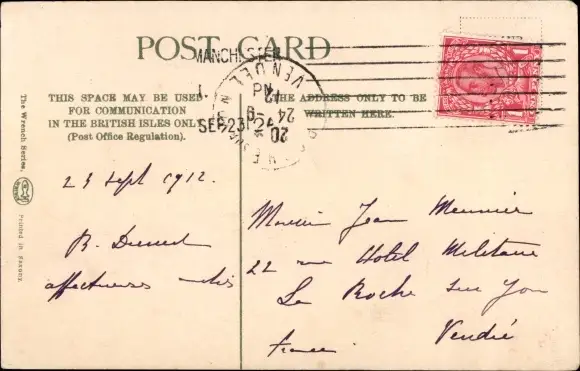 POST CARD
THIS SPACE MAY BE USED
FOR COMMUNICATION
IN THE BRITISH ISLES ONLY
(Post Office Regulation).
THE ADDRESS ONLY TO BE
WRITTEN HERE.
MANCHESTER
SEP 23 12
VENDEE
24
The Wrench Series.
Printed in Saxony.
23 Sept 1912.
R.
affectueuses
Monsieur Jean Meunier
22 rue Hotel Militaire
La Roche sur Yon
Vendée
France